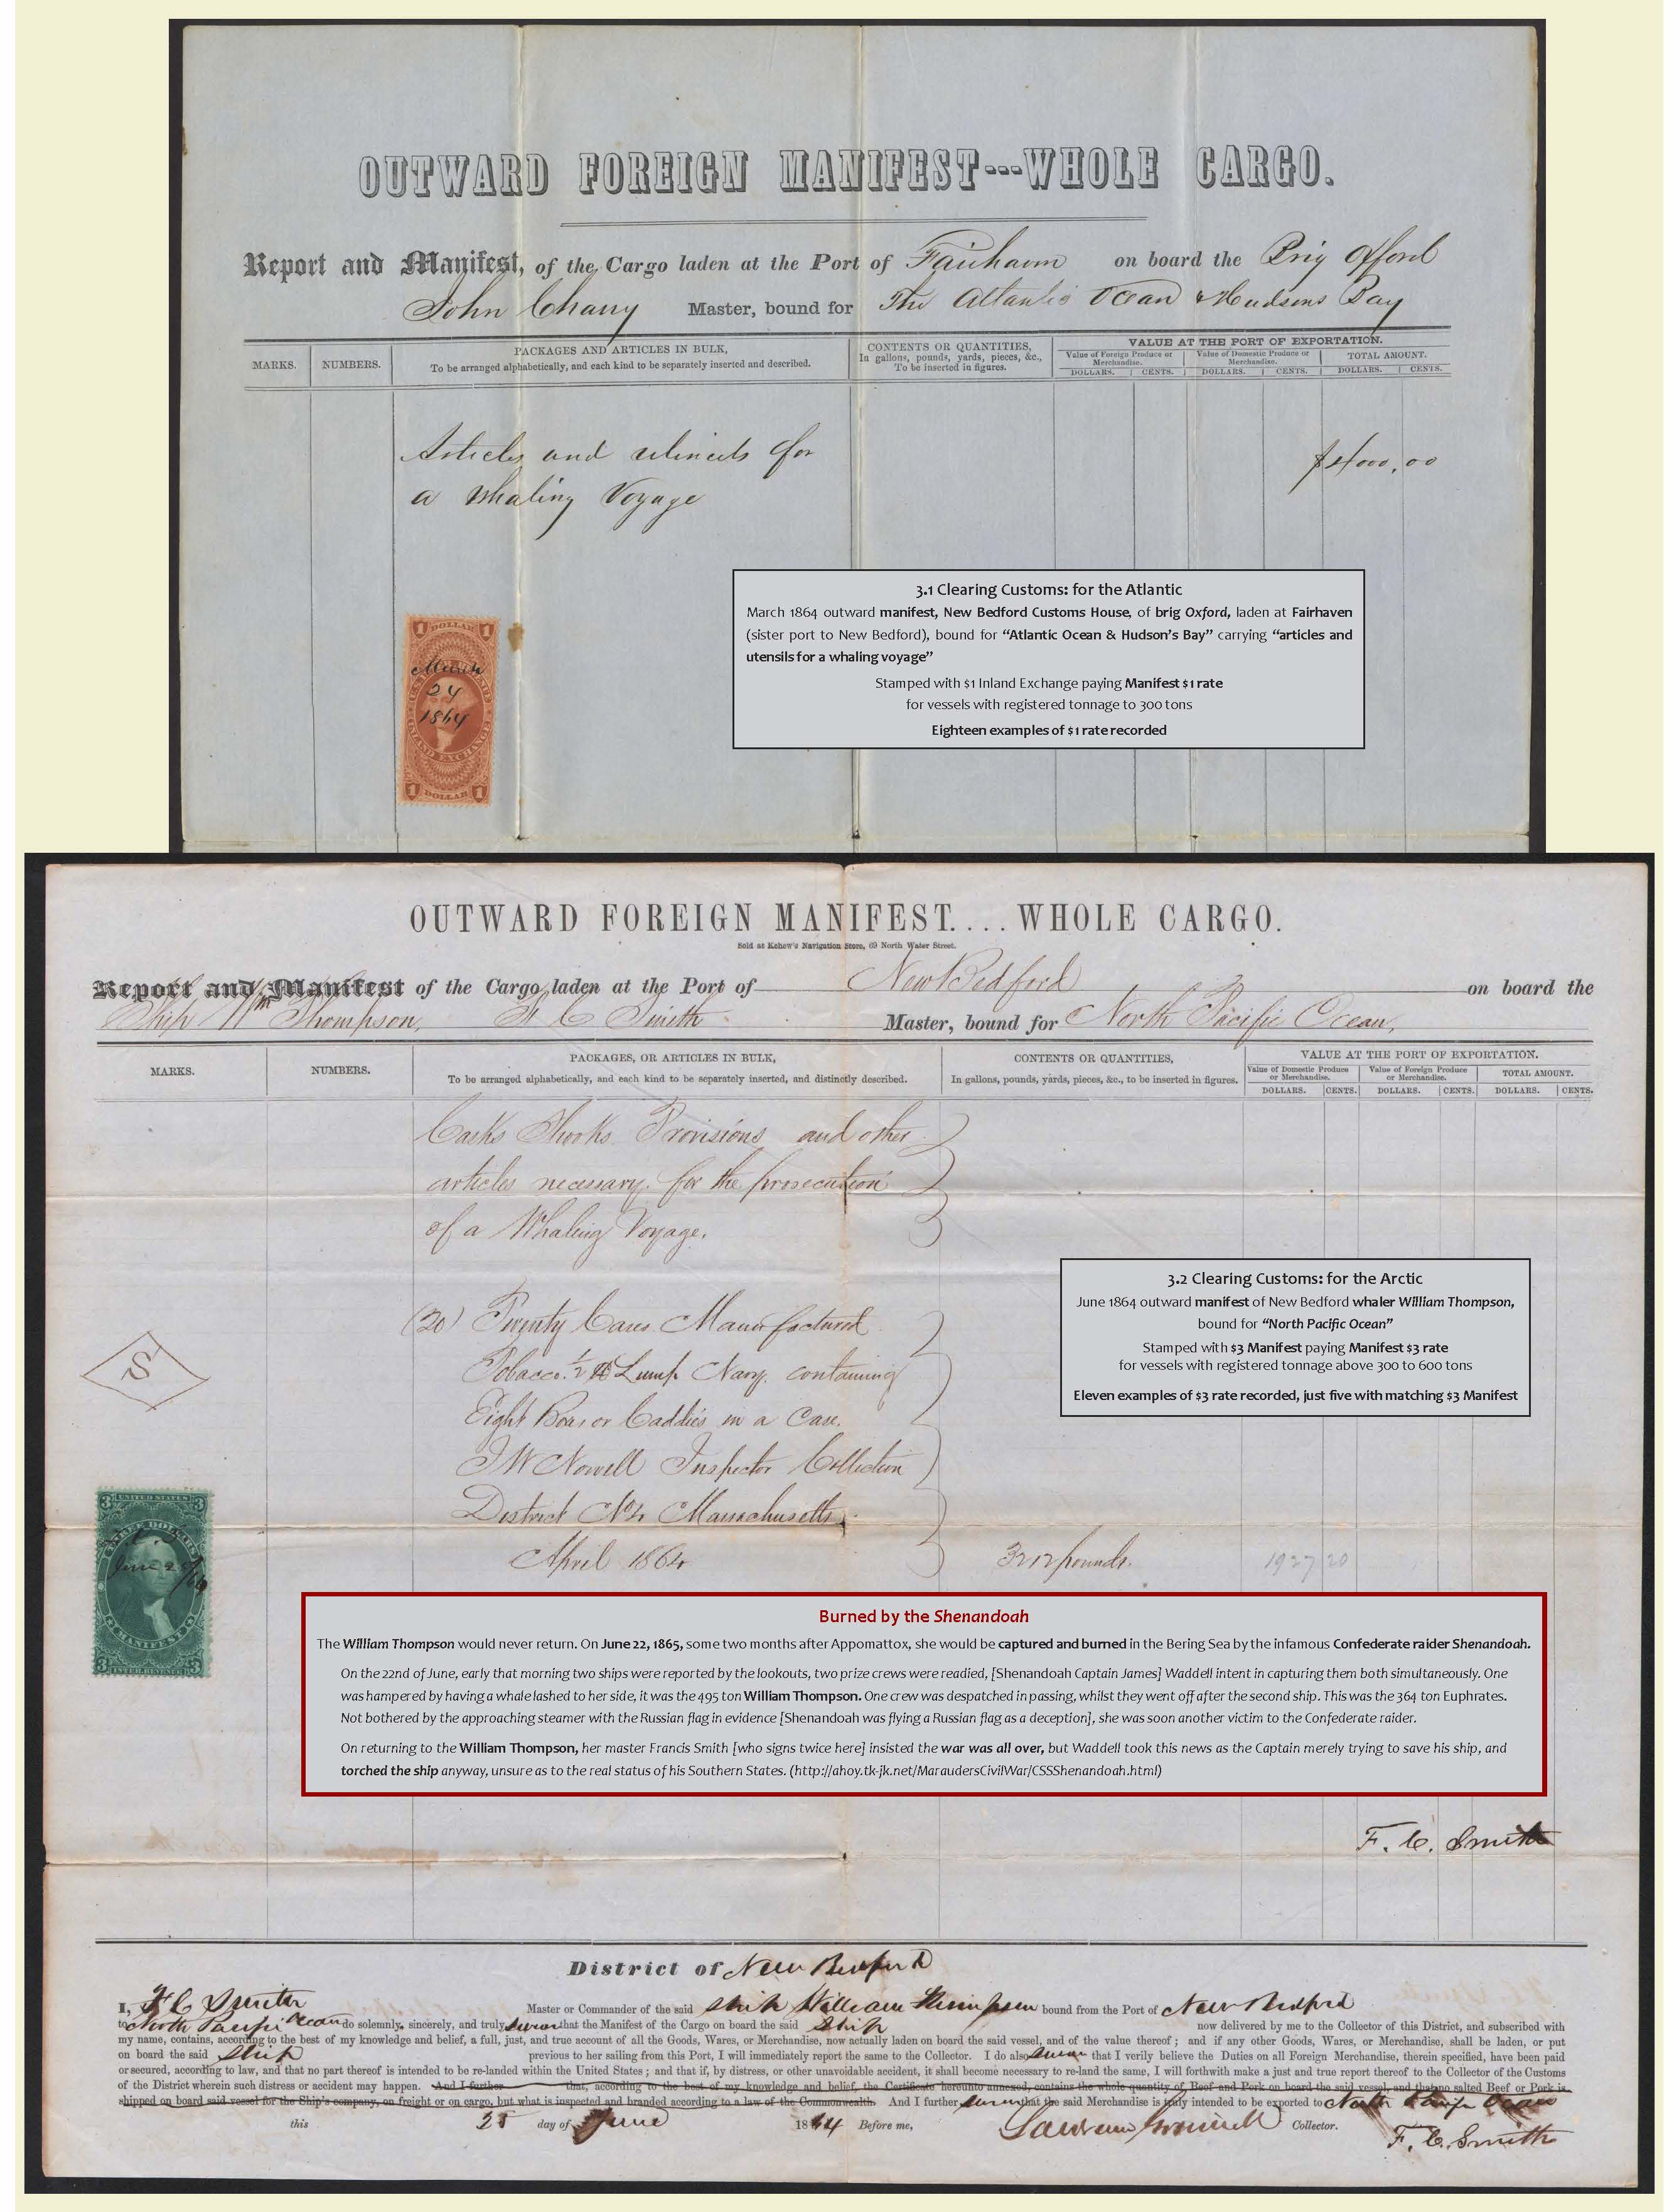 OUTWARD FOREIGN MANIFEST---WHOLE CARGO.
Report and Manifest, of the Cargo laden at the Port of Fairhaven on board the Brig Oxford
John Chany Master, bound for The Atlantic Ocean & Hudsons Bay
MARKS. NUMBERS. PACKAGES AND ARTICLES IN BULK, To be arranged alphabetically, and each kind to be separately inserted and described. CONTENTS OR QUANTITIES, In gallons, pounds, yards, pieces, &c., To be inserted in figures. VALUE AT THE PORT OF EXPORTATION.
Value of Foreign Produce or Merchandise. Value of Domestic Produce or Merchandise. TOTAL AMOUNT.
DOLLARS. CENTS. DOLLARS. CENTS. DOLLARS. CENTS.
Articles and utincels for
a Whaling Voyage
$4000,00
3.1 Clearing Customs: for the Atlantic
March 1864 outward manifest, New Bedford Customs House, of brig Oxford, laden at Fairhaven
(sister port to New Bedford), bound for “Atlantic Ocean & Hudson’s Bay” carrying “articles and
utensils for a whaling voyage”
Stamped with $1 Inland Exchange paying Manifest $1 rate
for vessels with registered tonnage to 300 tons
Eighteen examples of $1 rate recorded
1 DOLLAR 1
March
24
1864
INLAND EXCHANGE
1 DOLLAR 1
OUTWARD FOREIGN MANIFEST.... WHOLE CARGO.
Sold at Kehew's Navigation Store, 69 North Water Street.
Report and Manifest of the Cargo laden at the Port of New Bedford on board the
Ship Wm Thompson, F C Smith Master, bound for North Pacific Ocean,
MARKS. NUMBERS. PACKAGES, OR ARTICLES IN BULK, To be arranged alphabetically, and each kind to be separately inserted, and distinctly described. CONTENTS OR QUANTITIES, In gallons, pounds, yards, pieces, &c., to be inserted in figures. VALUE AT THE PORT OF EXPORTATION.
Value of Domestic Produce or Merchandise. Value of Foreign Produce or Merchandise. TOTAL AMOUNT.
DOLLARS. CENTS. DOLLARS. CENTS. DOLLARS. CENTS.
Casks Shooks Provisions and other
articles necessary for the prosecution
of a Whaling Voyage.
(20) Twenty Cases Manufactured
S
Tobacco. 1/2 lb Lump Navy. containing
Eight Boxes or Caddies in a Case.
J W Nowell Inspector Collection
District No 1, Massachusetts.
April 1864 3212 pounds. 1927 20
3.2 Clearing Customs: for the Arctic
June 1864 outward manifest of New Bedford whaler William Thompson,
bound for “North Pacific Ocean”
Stamped with $3 Manifest paying Manifest $3 rate
for vessels with registered tonnage above 300 to 600 tons
Eleven examples of $3 rate recorded, just five with matching $3 Manifest
3 UNITED STATES 3
THREE DOLLARS
June 25/64
MANIFEST
3 INTER. REVENUE 3
Burned by the Shenandoah
The William Thompson would never return. On June 22, 1865, some two months after Appomattox, she would be captured and burned in the Bering Sea by the infamous Confederate raider Shenandoah.
On the 22nd of June, early that morning two ships were reported by the lookouts, two prize crews were readied, [Shenandoah Captain James] Waddell intent in capturing them both simultaneously. One
was hampered by having a whale lashed to her side, it was the 495 ton William Thompson. One crew was despatched in passing, whilst they went off after the second ship. This was the 364 ton Euphrates.
Not bothered by the approaching steamer with the Russian flag in evidence [Shenandoah was flying a Russian flag as a deception], she was soon another victim to the Confederate raider.
On returning to the William Thompson, her master Francis Smith [who signs twice here] insisted the war was all over, but Waddell took this news as the Captain merely trying to save his ship, and
torched the ship anyway, unsure as to the real status of his Southern States. (http://ahoy.tk-jk.net/MaraudersCivilWar/CSSShenandoah.html)
F. C. Smith
District of New Bedford
I, F C Smith Master or Commander of the said Ship William Thompson bound from the Port of New Bedford
to North Pacific Ocean do solemnly, sincerely, and truly swear that the Manifest of the Cargo on board the said Ship now delivered by me to the Collector of this District, and subscribed with
my name, contains, according to the best of my knowledge and belief, a full, just, and true account of all the Goods, Wares, or Merchandise, now actually laden on board the said vessel, and of the value thereof; and if any other Goods, Wares, or Merchandise, shall be laden, or put
on board the said Ship previous to her sailing from this Port, I will immediately report the same to the Collector. I do also swear that I verily believe the Duties on all Foreign Merchandise, therein specified, have been paid
or secured, according to law, and that no part thereof is intended to be re-landed within the United States; and that if, by distress, or other unavoidable accident, it shall become necessary to re-land the same, I will forthwith make a just and true report thereof to the Collector of the Customs
of the District wherein such distress or accident may happen. And I further that, according to the best of my knowledge and belief, the Certificate hereunto annexed, contains the whole quantity of Beef and Pork on board the said vessel, and that no salted Beef or Pork is
shipped on board said vessel for the Ship's company, on freight or on cargo, but what is inspected and branded according to a law of the Commonwealth. And I further swear that the said Merchandise is truly intended to be exported to North Pacific Ocean
this 25 day of June 1864 Before me, Collector.
F. C. Smith